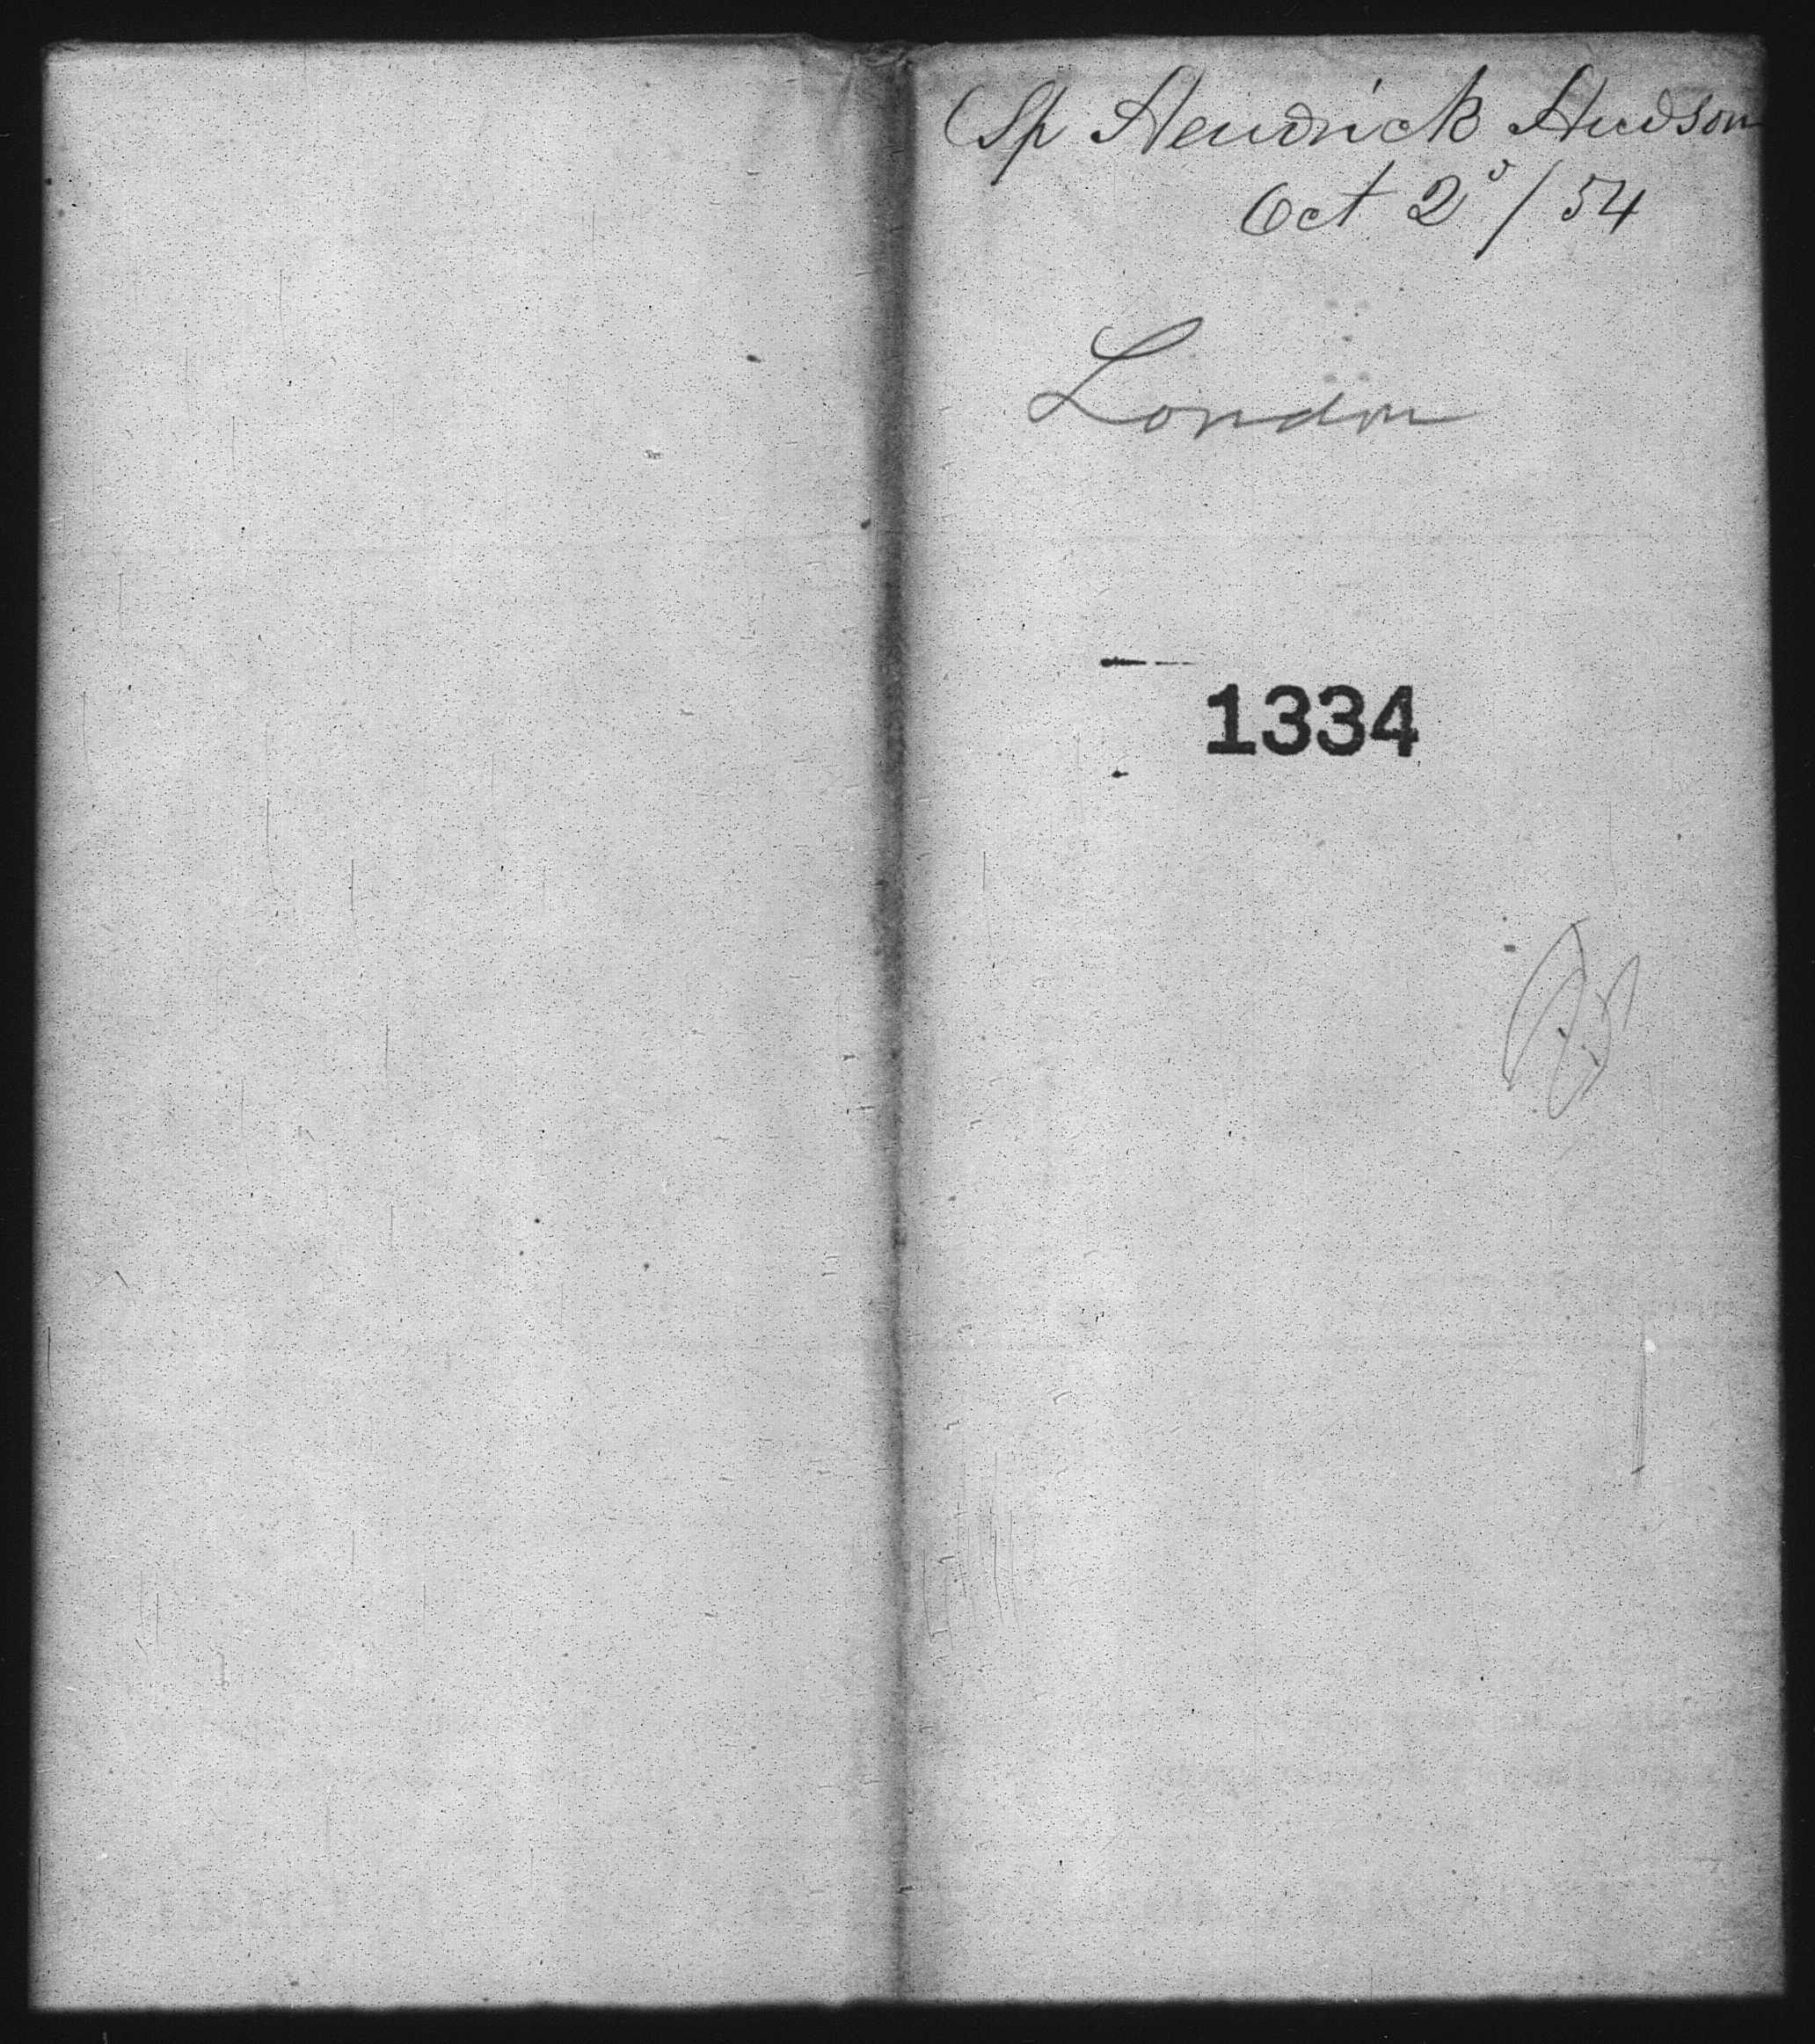 Sp Hendrick Hudson
Oct 2d / 54
London
1334